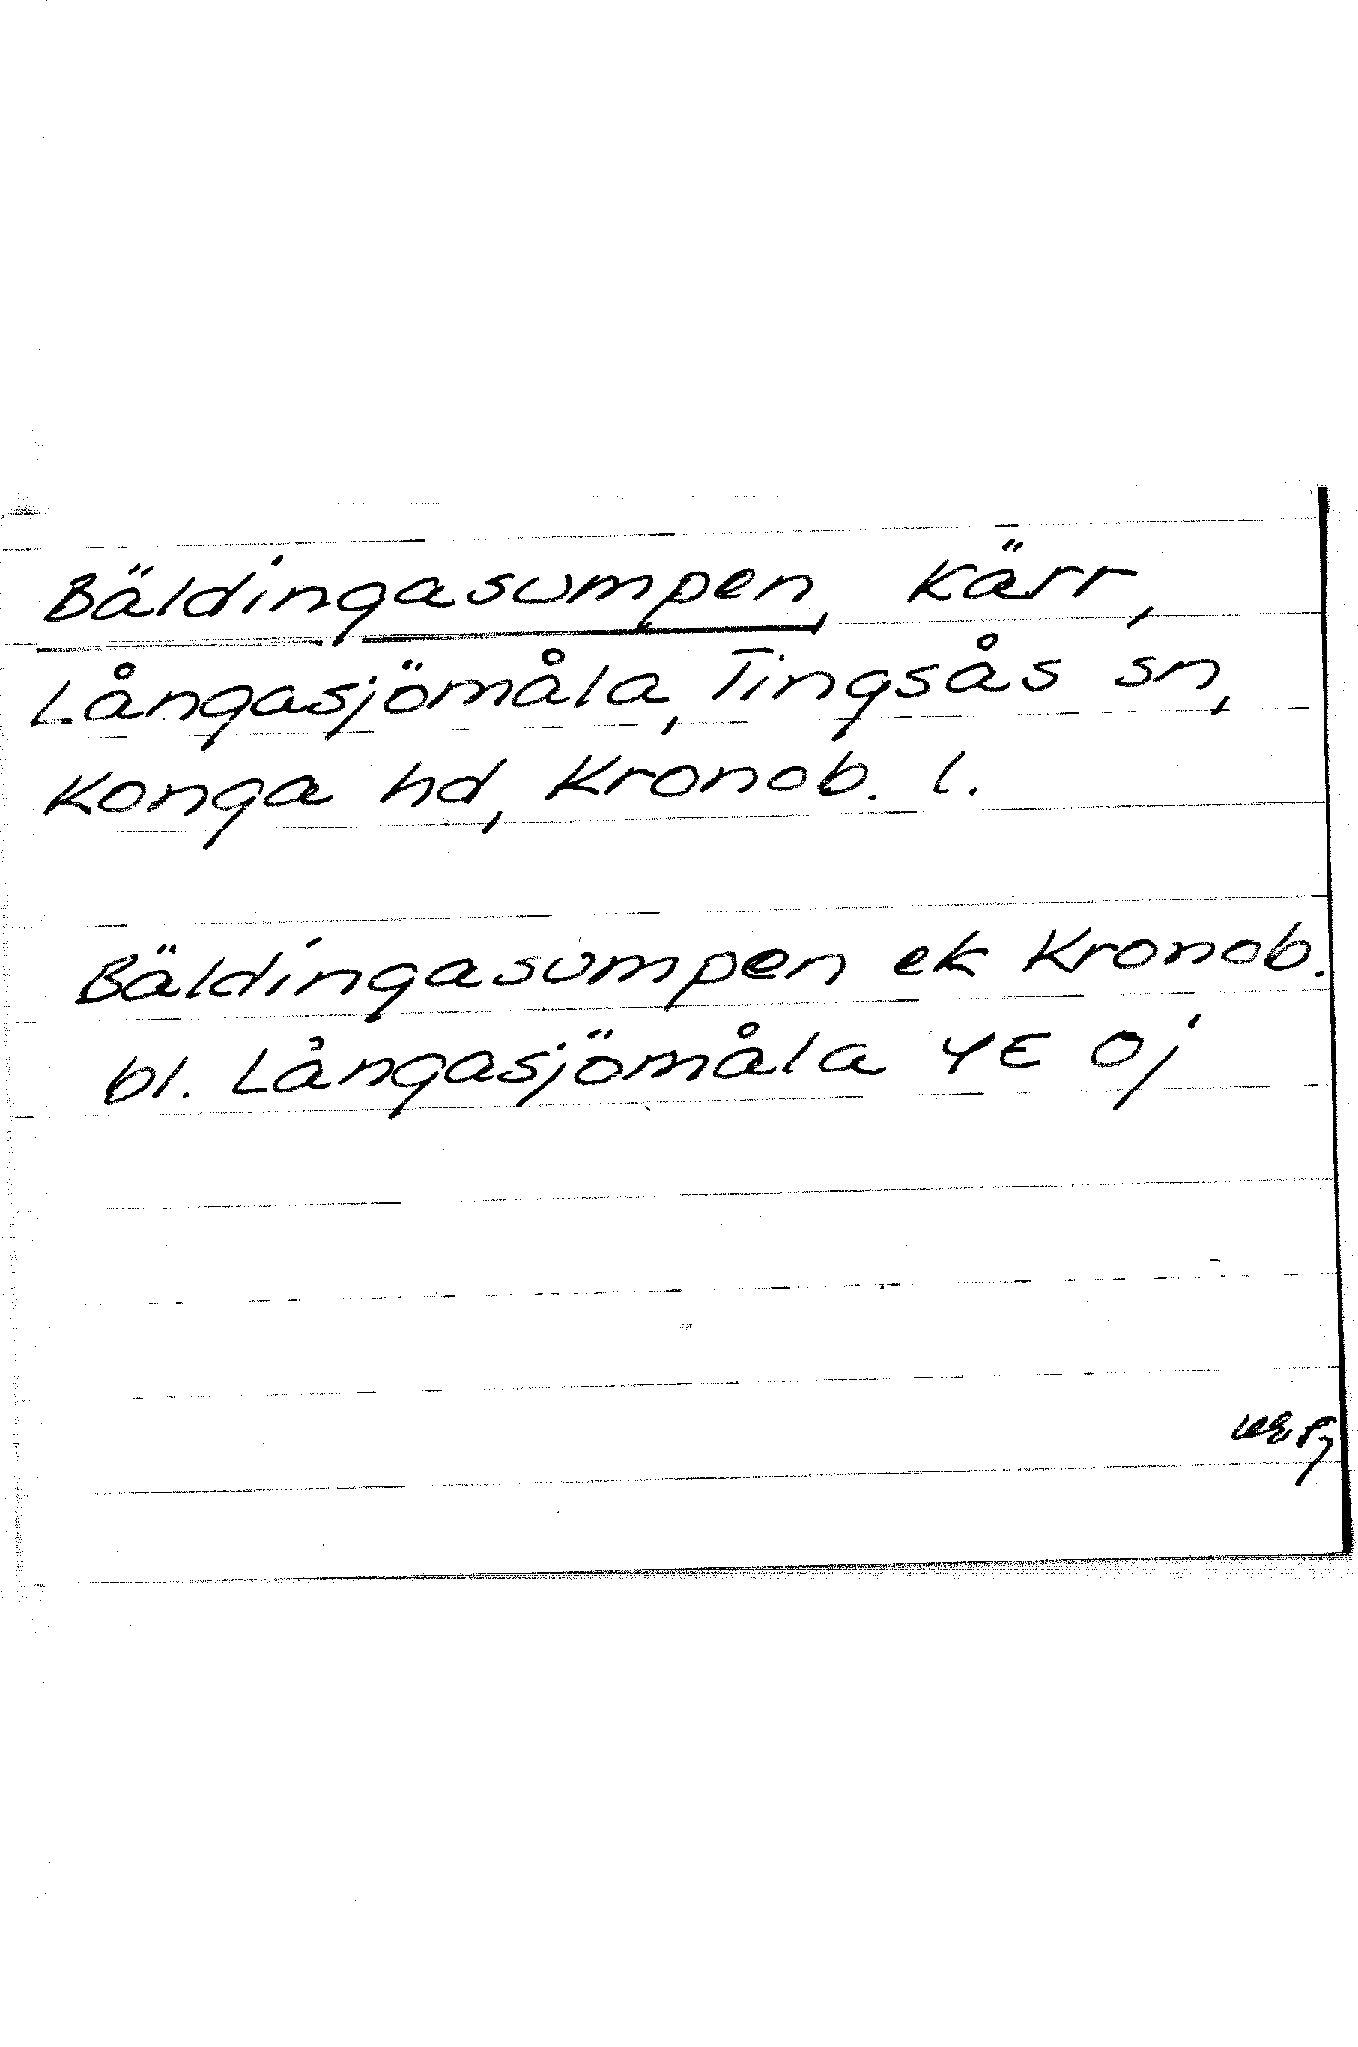 Bäldingasumpen, kärr,
Långasjömåla, Tingsås sn,
Konga hd, Kronob. l.
Bäldingasumpen ek Kronob.
bl. Långasjömåla 4E Oj